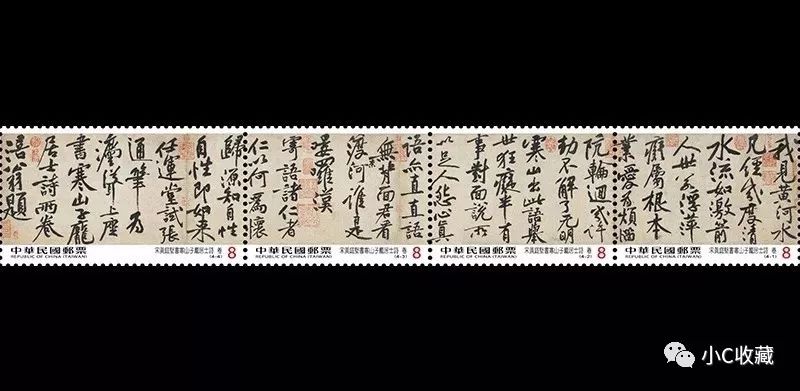 我見黃河水
凡經幾度清
水流如激箭
人世若浮萍
癡屬根本
業愛為煩惱
阬輪迴幾許
劫不解了無明
寒山出此語舉
世狂癡半有
事對面說所
以足人怨心真
語亦直直語
無背面君看
渡河誰是
嘍羅漢
寄語諸仁者
仁以何為懷
歸源知自性
自性即如來
任運堂試張
通筆為
灋聳上座
書寒山子龐
居士詩兩卷
涪翁題
中華民國郵票
REPUBLIC OF CHINA (TAIWAN)
宋黃庭堅書寒山子龐居士詩 卷
(4-4)
8
中華民國郵票
REPUBLIC OF CHINA (TAIWAN)
宋黃庭堅書寒山子龐居士詩 卷
(4-3)
8
中華民國郵票
REPUBLIC OF CHINA (TAIWAN)
宋黃庭堅書寒山子龐居士詩 卷
(4-2)
8
中華民國郵票
REPUBLIC OF CHINA (TAIWAN)
宋黃庭堅書寒山子龐居士詩 卷
(4-1)
8
小C收藏